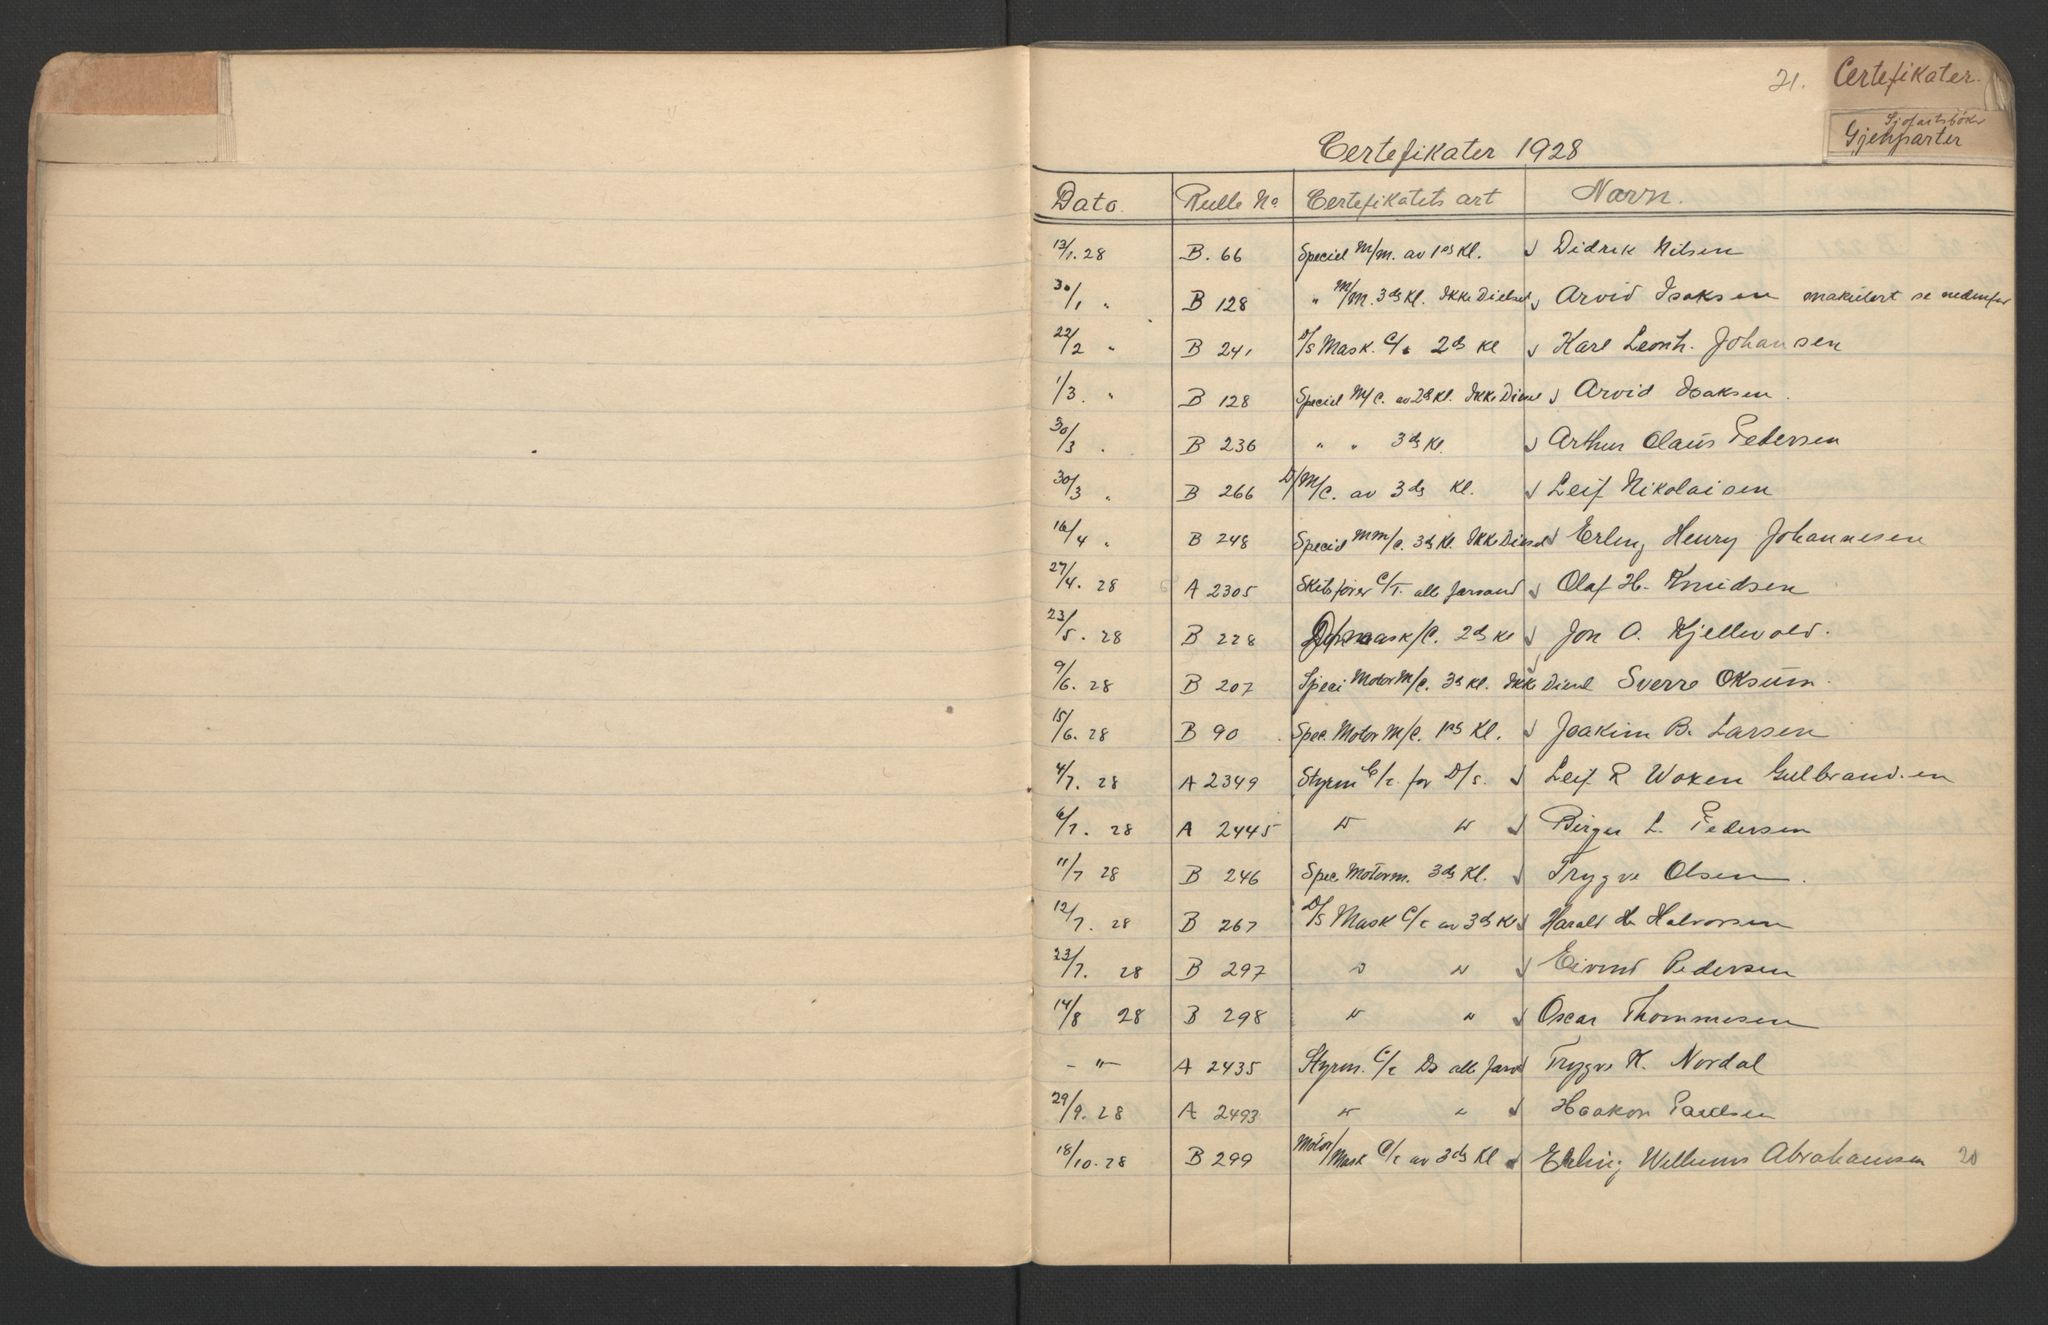 21. Certefikater.
Sjøfartsbøker
Gjenparter
Certefikater 1928
Dato. Rulle No Certefikatets art Navn.
13/1. 28 B. 66 Speciel M/m. av 1ste Kl. √ Didrik Nilsen
30/1 " B 128 " M/M. 3die Kl. Ikke Diesel √ Arvid Isaksen makulert se nedenfor
22/2 " B 241 D/S Mask. C/t 2die Kl √ Karl Leonh. Johansen
1/3. " B 128 Speciel M/C. av 2die Kl. Ikke Diesel √ Arvid Isaksen.
30/3 " B 236 " " 3die Kl. √ Arthur Olaus Pedersen
30/3 " B 266 D/M/C. av 3die Kl. √ Leif Nikolaisen
16/4 " B 248 Speciel MM/C. 3die Kl. Ikke Diesel √ Erling Henry Johannesen
27/4. 28 A 2305 Skibsfører C/T. alle farvand √ Olaf H. Knudsen
23/5. 28 B 228 mask/C. 2die Kl √ Jon O. Kjellevold.
9/6. 28 B 207 Speci Motor M/C. 3die Kl. Ikke Diesel Sverre Oksum.
15/6. 28 B 90 Spec. Motor M/C. 1ste Kl. √ Joakim B. Larsen
4/7. 28 A 2349 Styrm C/t. for D/s. √ Leif R Woxen Gulbrandsen
6/7. 28 A 2445 " " √ Birger L. Pedersen
11/7 28 B 246 Spec Motorm. 3die Kl. √ Trygve Olsen.
12/7. 28 B 267 D/S Mask C/t av 3die Kl √ Harald H. Halvorsen
23/7. 28 B 297 " " √ Eivind Pedersen
14/8 28 B 298 " " √ Oscar Thommesen
- " - A 2435 Styrm. C/t Ds alle farvd √ Trygve K. Nordal
29/9. 28 A 2493 " " √ Haakon Paulsen
18/10. 28 B 299 Motor/Mask C/t av 3die Kl √ Erling Willums Abrahamsen 20